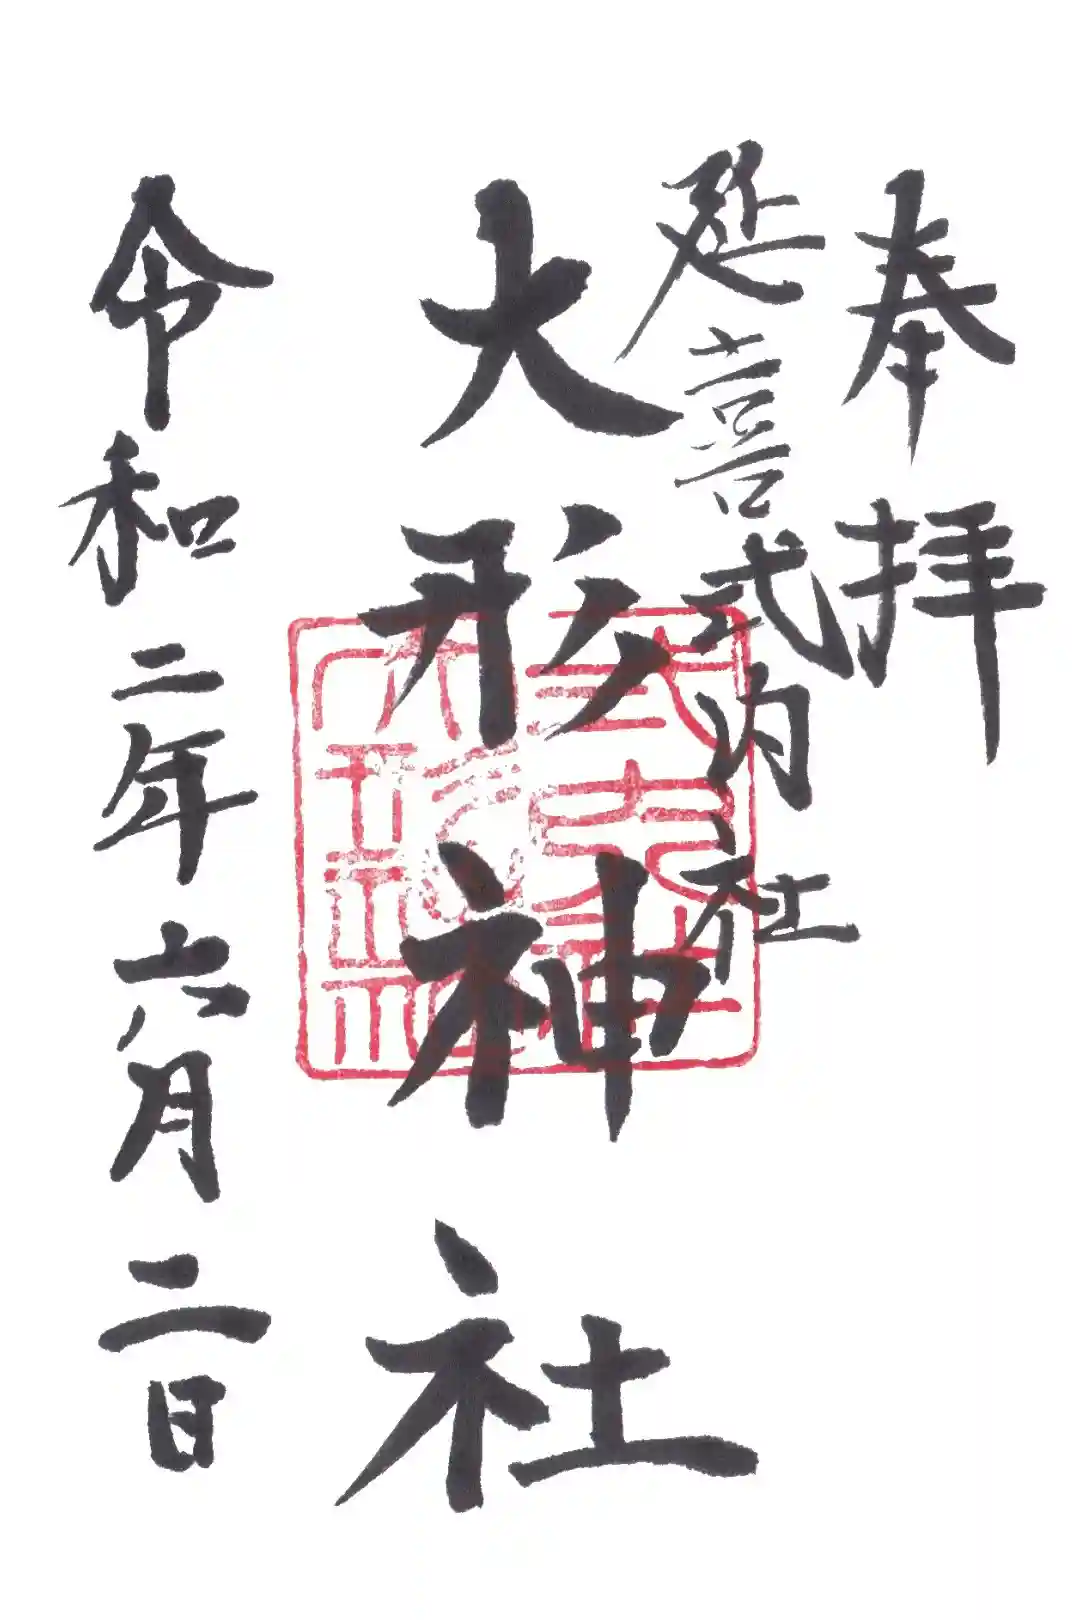 奉拝
延喜式内社
大形神社
令和二年六月二日